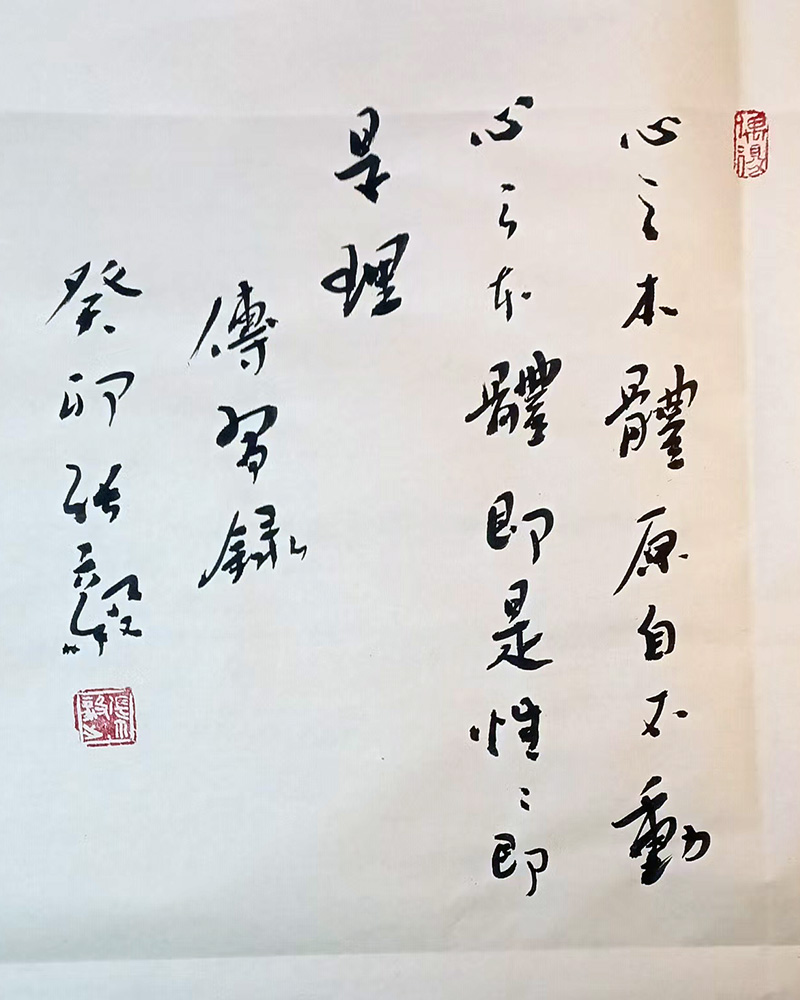 心之本體原自不動
心之本體即是性〻即
是理
傳習録
癸卯張天毅